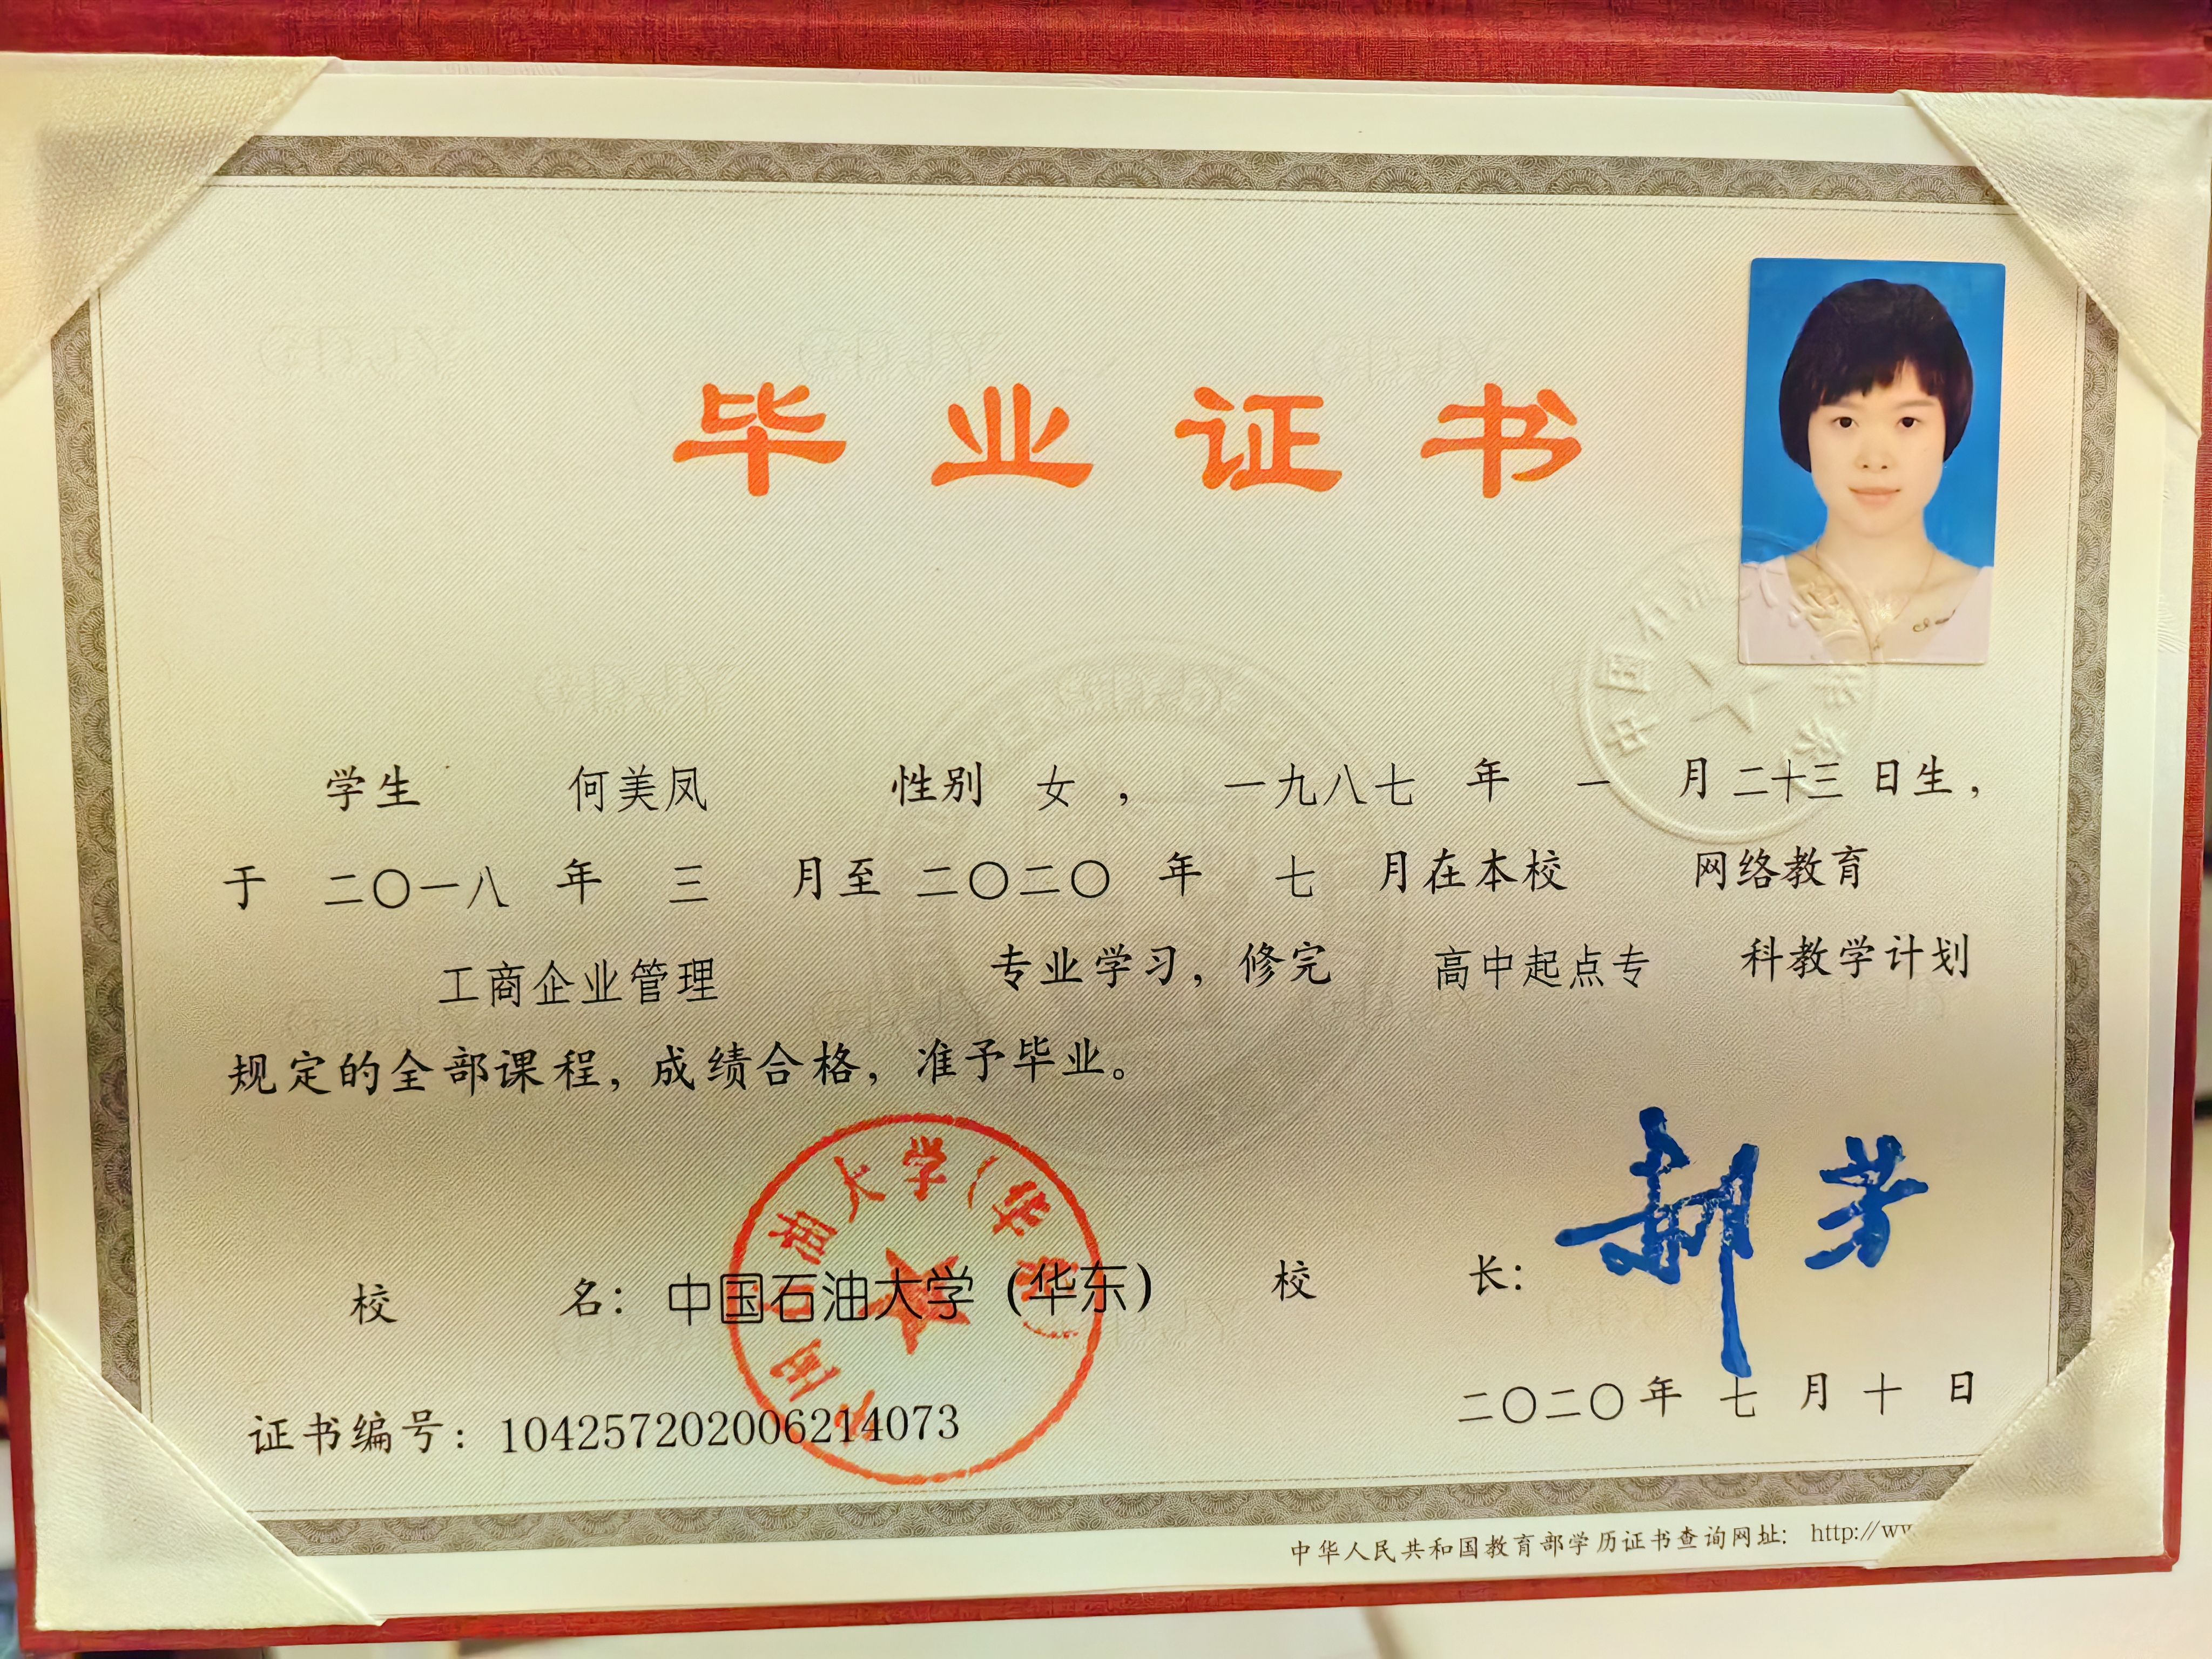 毕业证书
学生 何美凤 性别 女 ， 一九八七 年 一 月 二十三 日生，
于 二〇一八 年 三 月至 二〇二〇 年 七 月在本校 网络教育
工商企业管理 专业学习，修完 高中起点专 科教学计划
规定的全部课程，成绩合格，准予毕业。
校 名：中国石油大学（华东） 校 长：
证书编号：104257202006214073
二〇二〇年 七 月 十 日
中华人民共和国教育部学历证书查询网址： http://ww